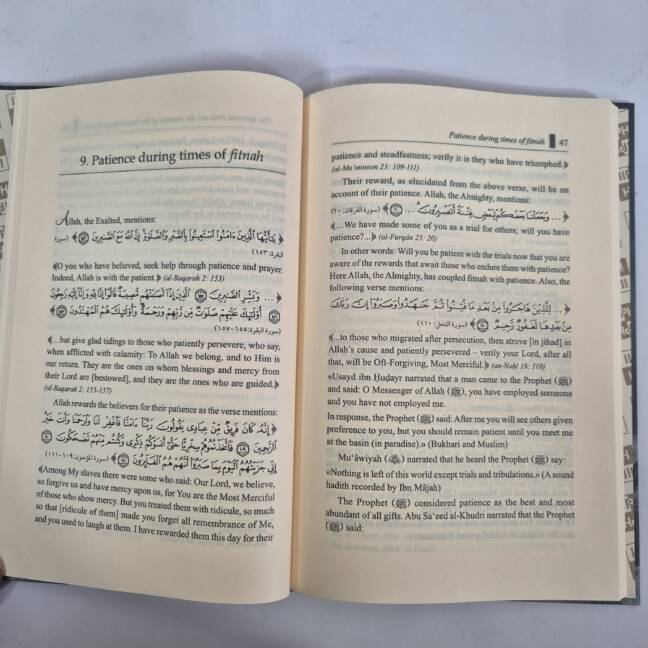 9. Patience during times of fitnah
Allah, the Exalted, mentions:
﴿ يَٰٓأَيُّهَا ٱلَّذِينَ ءَامَنُوا۟ ٱسْتَعِينُوا۟ بِٱلصَّبْرِ وَٱلصَّلَوٰةِ إِنَّ ٱللَّهَ مَعَ ٱلصَّٰبِرِينَ ﴾ (سورة
البقرة: ١٥٣)
﴾O you who have believed, seek help through patience and prayer.
Indeed, Allah is with the patient.﴿ (al-Baqarah 2: 153)
﴿ ... وَبَشِّرِ ٱلصَّٰبِرِينَ ۝ ٱلَّذِينَ إِذَآ أَصَٰبَتْهُم مُّصِيبَةٌ قَالُوٓا۟ إِنَّا لِلَّهِ وَإِنَّآ إِلَيْهِ رَٰجِعُونَ
۝ أُو۟لَٰٓئِكَ عَلَيْهِمْ صَلَوَٰتٌ مِّن رَّبِّهِمْ وَرَحْمَةٌ وَأُو۟لَٰٓئِكَ هُمُ ٱلْمُهْتَدُونَ ۝ ﴾
(سورة البقرة: ١٥٥-١٥٧)
﴾...but give glad tidings to those who patiently persevere, who say,
when afflicted with calamity: To Allah we belong, and to Him is
our return. They are the ones on whom blessings and mercy from
their Lord are [bestowed], and they are the ones who are guided.﴿
(al-Baqarah 2: 155-157)
Allah rewards the believers for their patience as the verse mentions:
﴿ إِنَّهُۥ كَانَ فَرِيقٌ مِّنْ عِبَادِى يَقُولُونَ رَبَّنَآ ءَامَنَّا فَٱغْفِرْ لَنَا وَٱرْحَمْنَا وَأَنتَ خَيْرُ
ٱلرَّٰحِمِينَ ۝ فَٱتَّخَذْتُمُوهُمْ سِخْرِيًّا حَتَّىٰٓ أَنسَوْكُمْ ذِكْرِى وَكُنتُم مِّنْهُمْ تَضْحَكُونَ ۝
إِنِّى جَزَيْتُهُمُ ٱلْيَوْمَ بِمَا صَبَرُوٓا۟ أَنَّهُمْ هُمُ ٱلْفَآئِزُونَ ۝ ﴾ (سورة المؤمنون: ١٠٩-١١١)
﴾Among My slaves there were some who said: Our Lord, we believe,
so forgive us and have mercy upon us, for You are the Most Merciful
of those who show mercy. But you treated them with ridicule, so much
so that [ridicule of them] made you forget all remembrance of Me,
and you used to laugh at them. I have rewarded them this day for their
Patience during times of fitnah 47
patience and steadfastness; verily it is they who have triumphed.﴿
(al-Mu'minoon 23: 109-111)
Their reward, as elucidated from the above verse, will be on
account of their patience. Allah, the Almighty, mentions:
﴿ ... وَجَعَلْنَا بَعْضَكُمْ لِبَعْضٍ فِتْنَةً أَتَصْبِرُونَ ... ۝ ﴾ (سورة الفرقان: ٢٠)
﴾...We have made some of you as a trial for others; will you have
patience?...﴿ (al-Furqân 25: 20)
In other words: Will you be patient with the trials now that you are
aware of the rewards that await those who endure them with patience?
Here Allah, the Almighty, has coupled fitnah with patience. Also, the
following verse mentions:
﴿ ... لِلَّذِينَ هَاجَرُوا۟ مِنۢ بَعْدِ مَا فُتِنُوا۟ ثُمَّ جَٰهَدُوا۟ وَصَبَرُوٓا۟ إِنَّ رَبَّكَ
مِنۢ بَعْدِهَا لَغَفُورٌ رَّحِيمٌ ۝ ﴾ (سورة النحل: ١١٠)
﴾...to those who migrated after persecution, then strove [in jihad] in
Allah's cause and patiently persevered – verily your Lord, after all
that, will be Oft-Forgiving, Most Merciful.﴿ (an-Nahl 16: 110)
«Usayd ibn Ḥuḍayr narrated that a man came to the Prophet (ﷺ)
and said: O Messenger of Allah (ﷺ), you have employed someone
and you have not employed me.
In response, the Prophet (ﷺ) said: After me you will see others given
preference to you, but you should remain patient until you meet me
at the basin (in paradise).» (Bukhari and Muslim)
Mu'âwiyah (ﷺ) narrated that he heard the Prophet (ﷺ) say:
«Nothing is left of this world except trials and tribulations.» (A sound
hadith recorded by Ibn Mâjah)
The Prophet (ﷺ) considered patience as the best and most
abundant of all gifts. Abu Sa'eed al-Khudri narrated that the Prophet
(ﷺ) said: